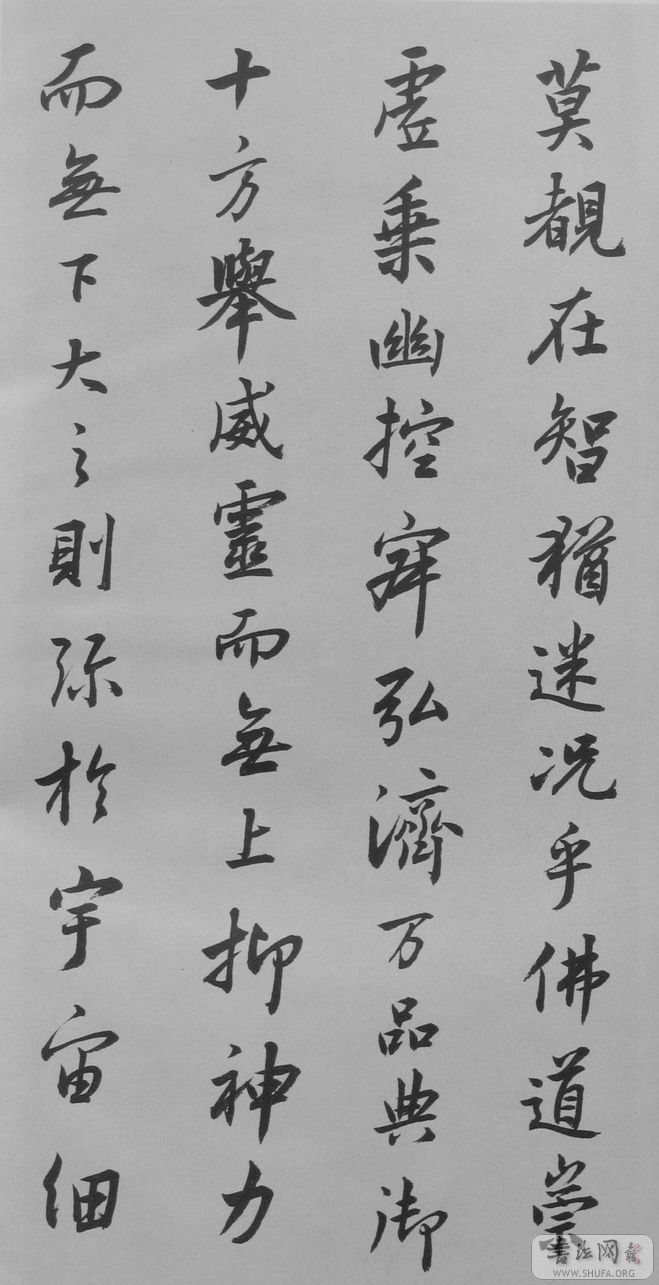 莫覩在智猶迷况乎佛道崇
虗乗幽控寂弘濟万品典御
十方舉威靈而無上抑神力
而無下大之則弥於宇宙細
書法网
WWW.SHUFA.ORG